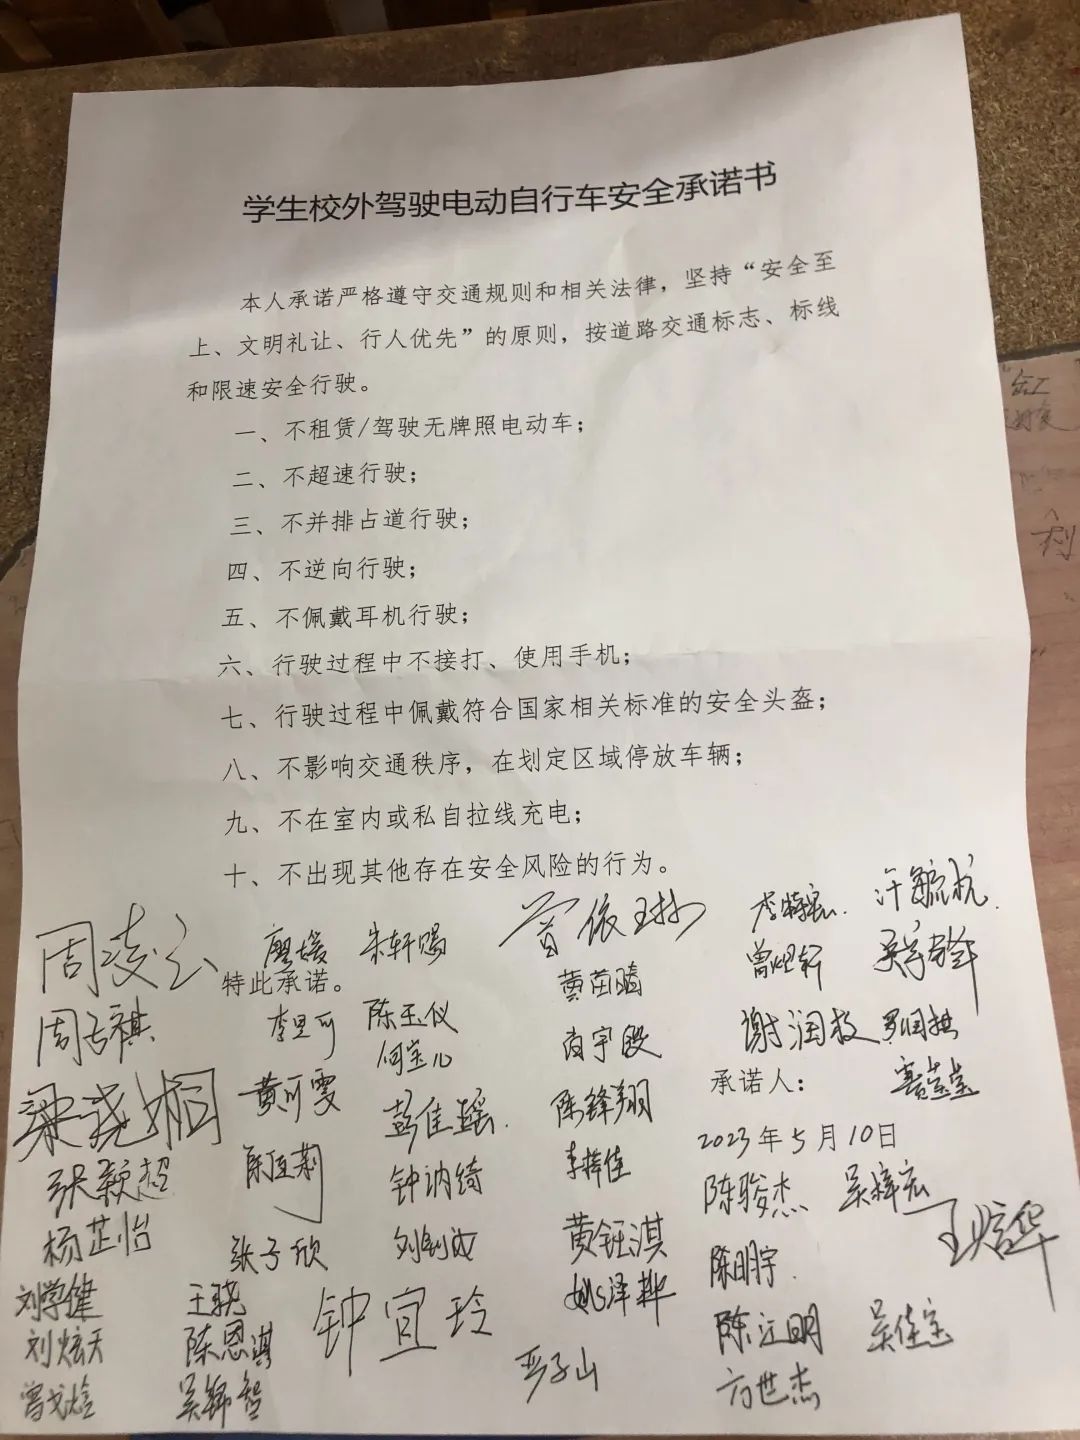 学生校外驾驶电动自行车安全承诺书
本人承诺严格遵守交通规则和相关法律，坚持“安全至
上、文明礼让、行人优先”的原则，按道路交通标志、标线
和限速安全行驶。
一、不租赁/驾驶无牌照电动车；
二、不超速行驶；
三、不并排占道行驶；
四、不逆向行驶；
五、不佩戴耳机行驶；
六、行驶过程中不接打、使用手机；
七、行驶过程中佩戴符合国家相关标准的安全头盔；
八、不影响交通秩序，在划定区域停放车辆；
九、不在室内或私自拉线充电；
十、不出现其他存在安全风险的行为。
廖媛 朱轩赐 曾依琳
特此承诺。 黄苗晴
陈玉仪 谢润枝
何宝儿
承诺人：
黄可雯 彭佳瑶 陈锋翔
2023年5月10日
张颖超 钟讷绮 李梓佳 陈骏杰 吴梓宏
杨芷怡 张子欣 黄钰淇 陈明宇
刘学健 王骁 钟宜玲
刘炫天 陈恩淇 严子山 陈江明 吴佳宝
吴锦智 方世杰